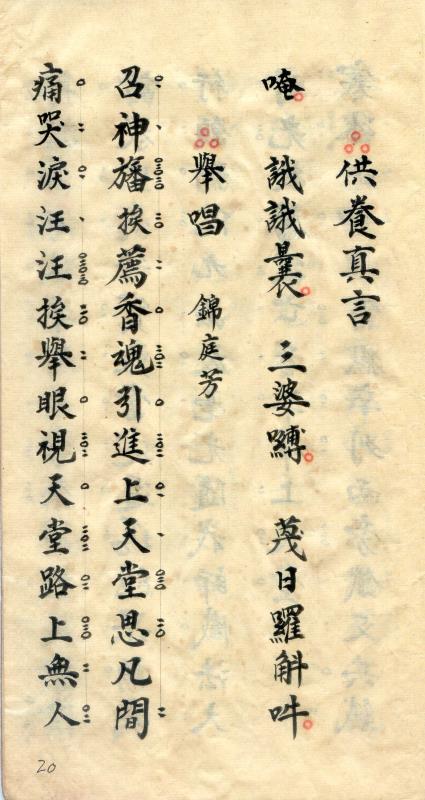 供養真言
唵 誐誐曩 三婆嚩 韈日羅斛吽
舉唱 錦庭芳
召神旛挨薦香魂引進上天堂思凡間
痛哭淚汪汪挨舉眼視天堂路上無人
20